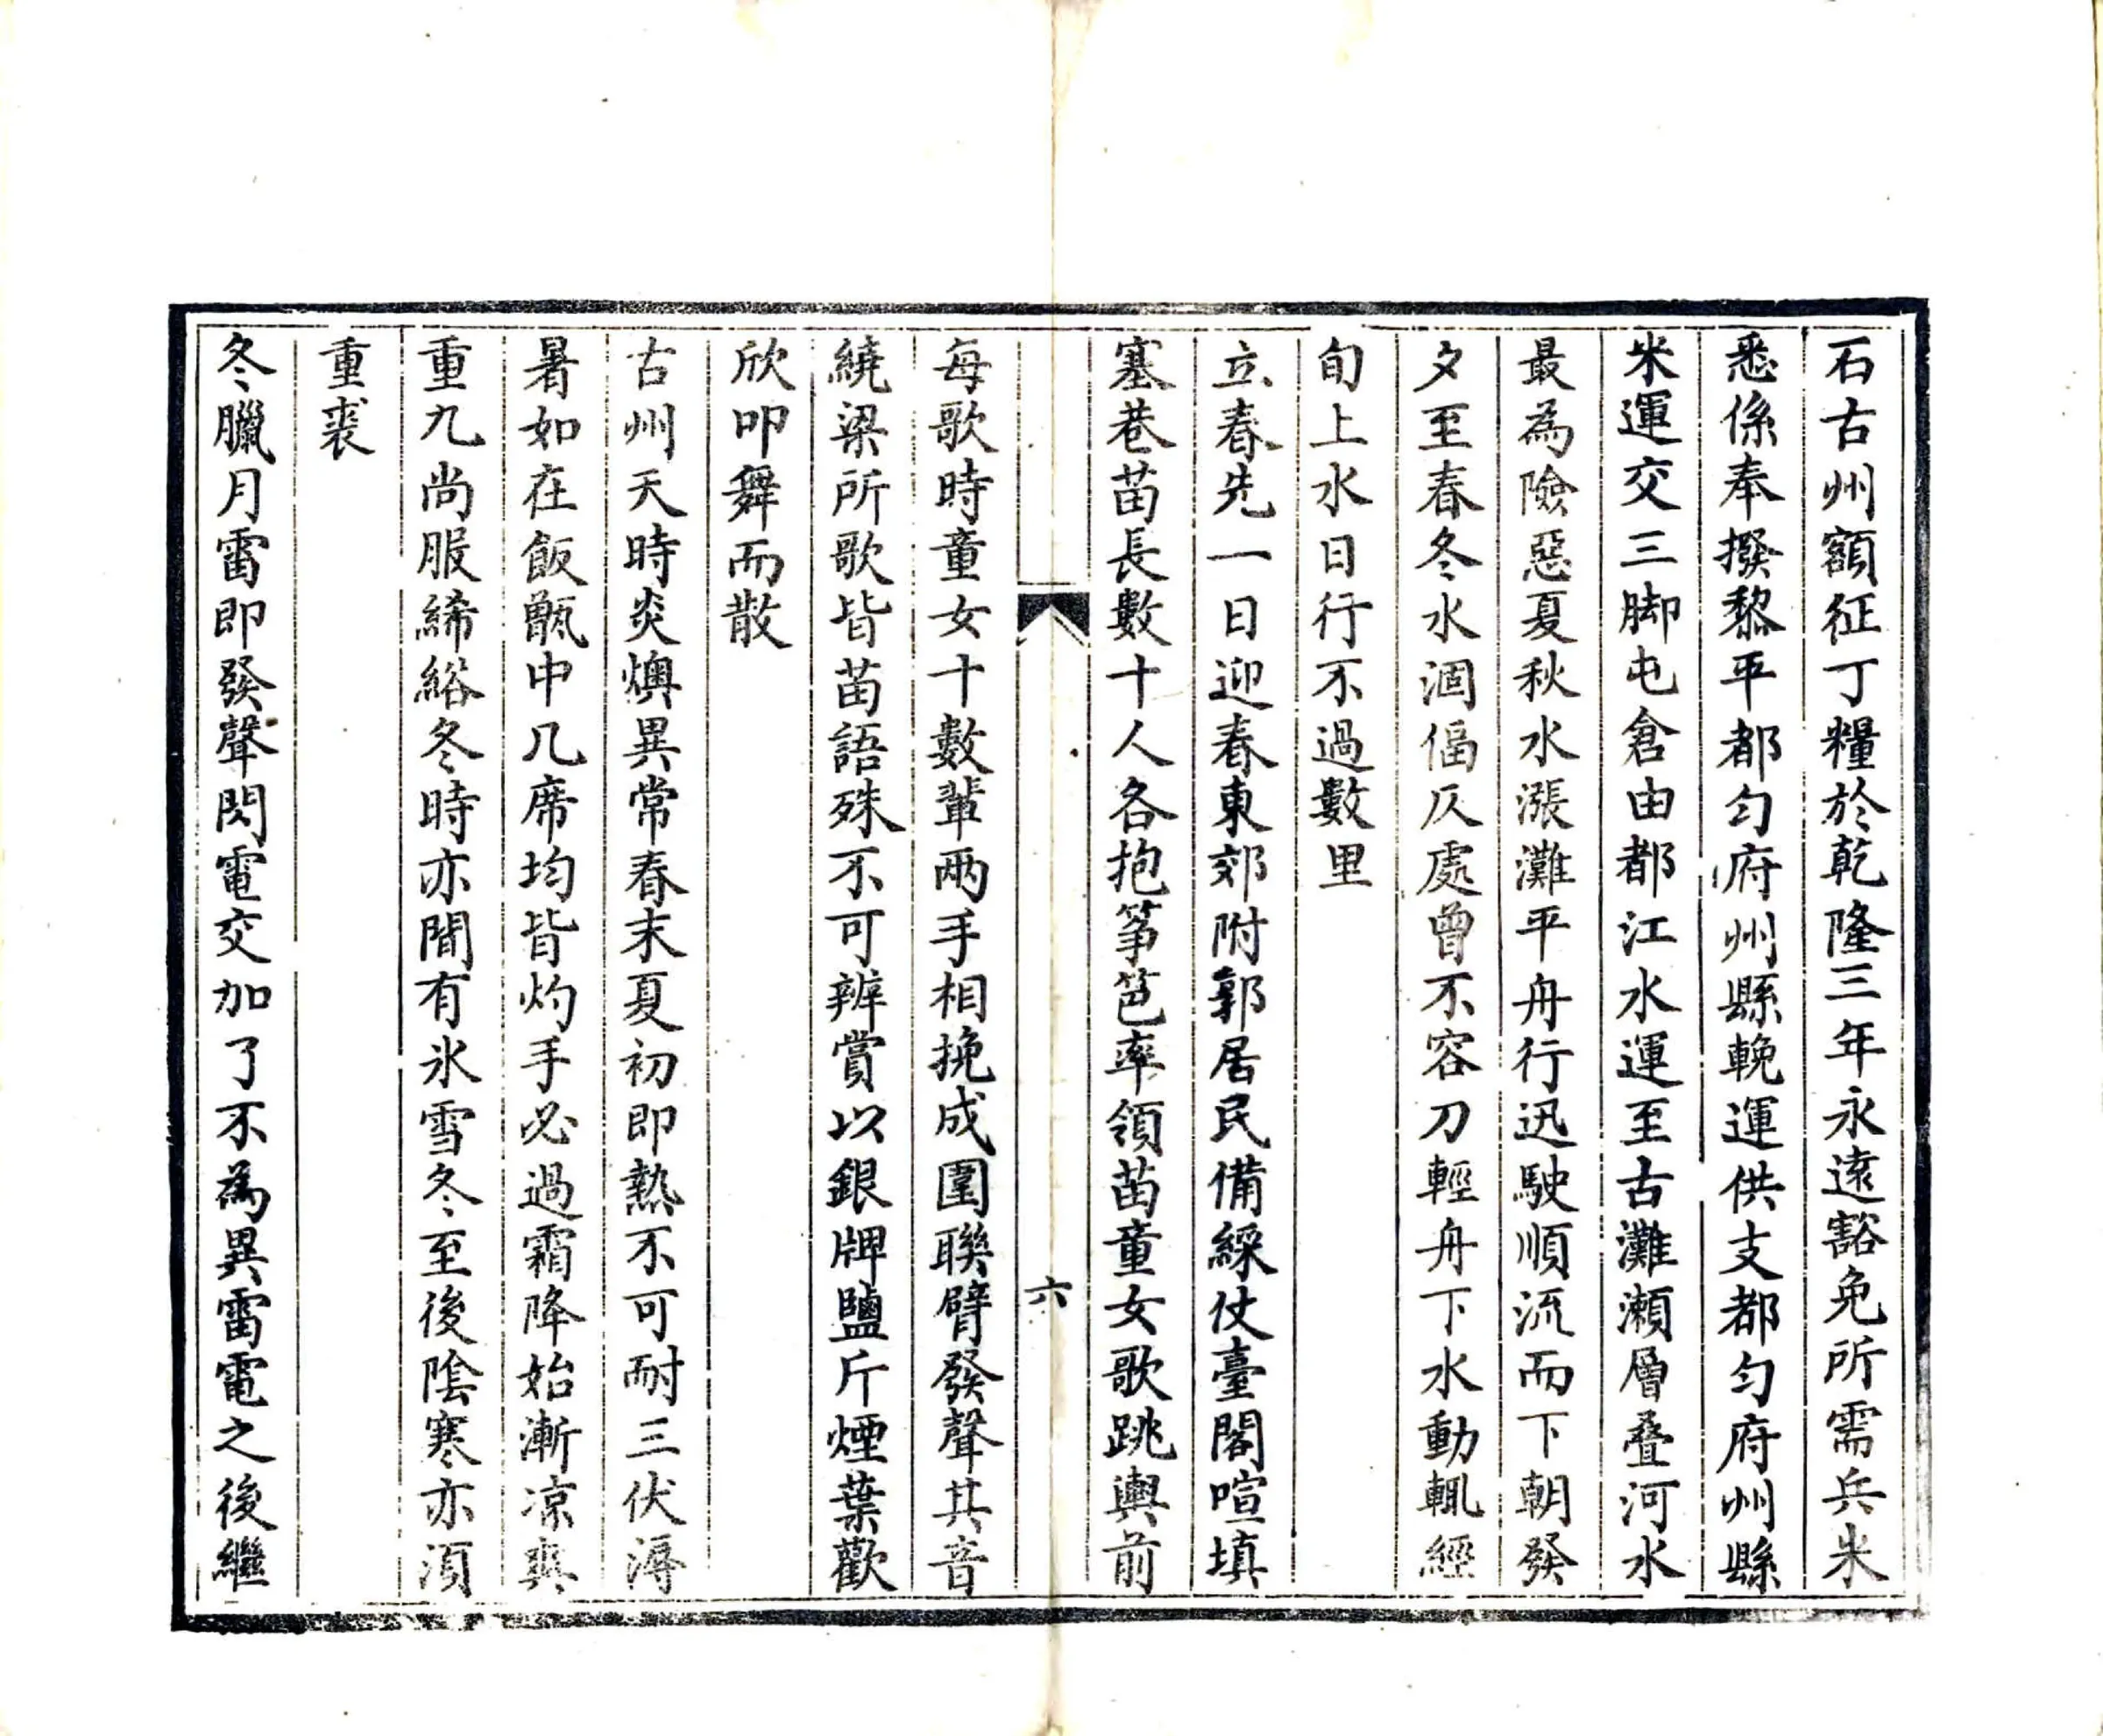 石古州額征丁糧於乾隆三年永遠豁免所需兵米
悉係奉撥黎平都勻府州縣輓運供支都勻府州縣
米運交三脚屯倉由都江水運至古灘瀨層叠河水
最為險惡夏秋水漲灘平舟行迅駛順流而下朝發
夕至春冬水涸偪仄處曾不容刀輕舟下水動輒經
旬上水日行不過數里
立春先一日迎春東郊附郭居民備綵仗臺閣喧填
塞巷苗長數十人各抱筝笆率領苗童女歌跳輿前
六
每歌時童女十數輩兩手相挽成圍聯臂發聲其音
繞梁所歌皆苗語殊不可辨賞以銀牌鹽斤煙葉歡
欣叩舞而散
古州天時炎燠異常春末夏初即熱不可耐三伏溽
暑如在飯甑中几席均皆灼手必過霜降始漸凉爽
重九尚服絺綌冬時亦間有氷雪冬至後陰寒亦須
重裘
冬臘月雷即發聲閃電交加了不為異雷電之後繼